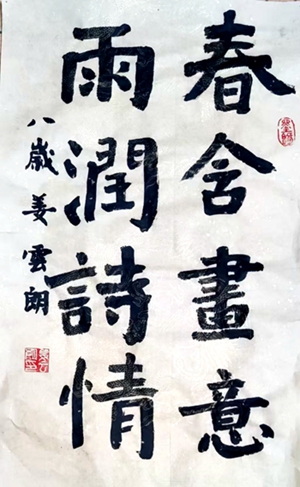 春含畫意
雨潤詩情
八歲姜雲朗